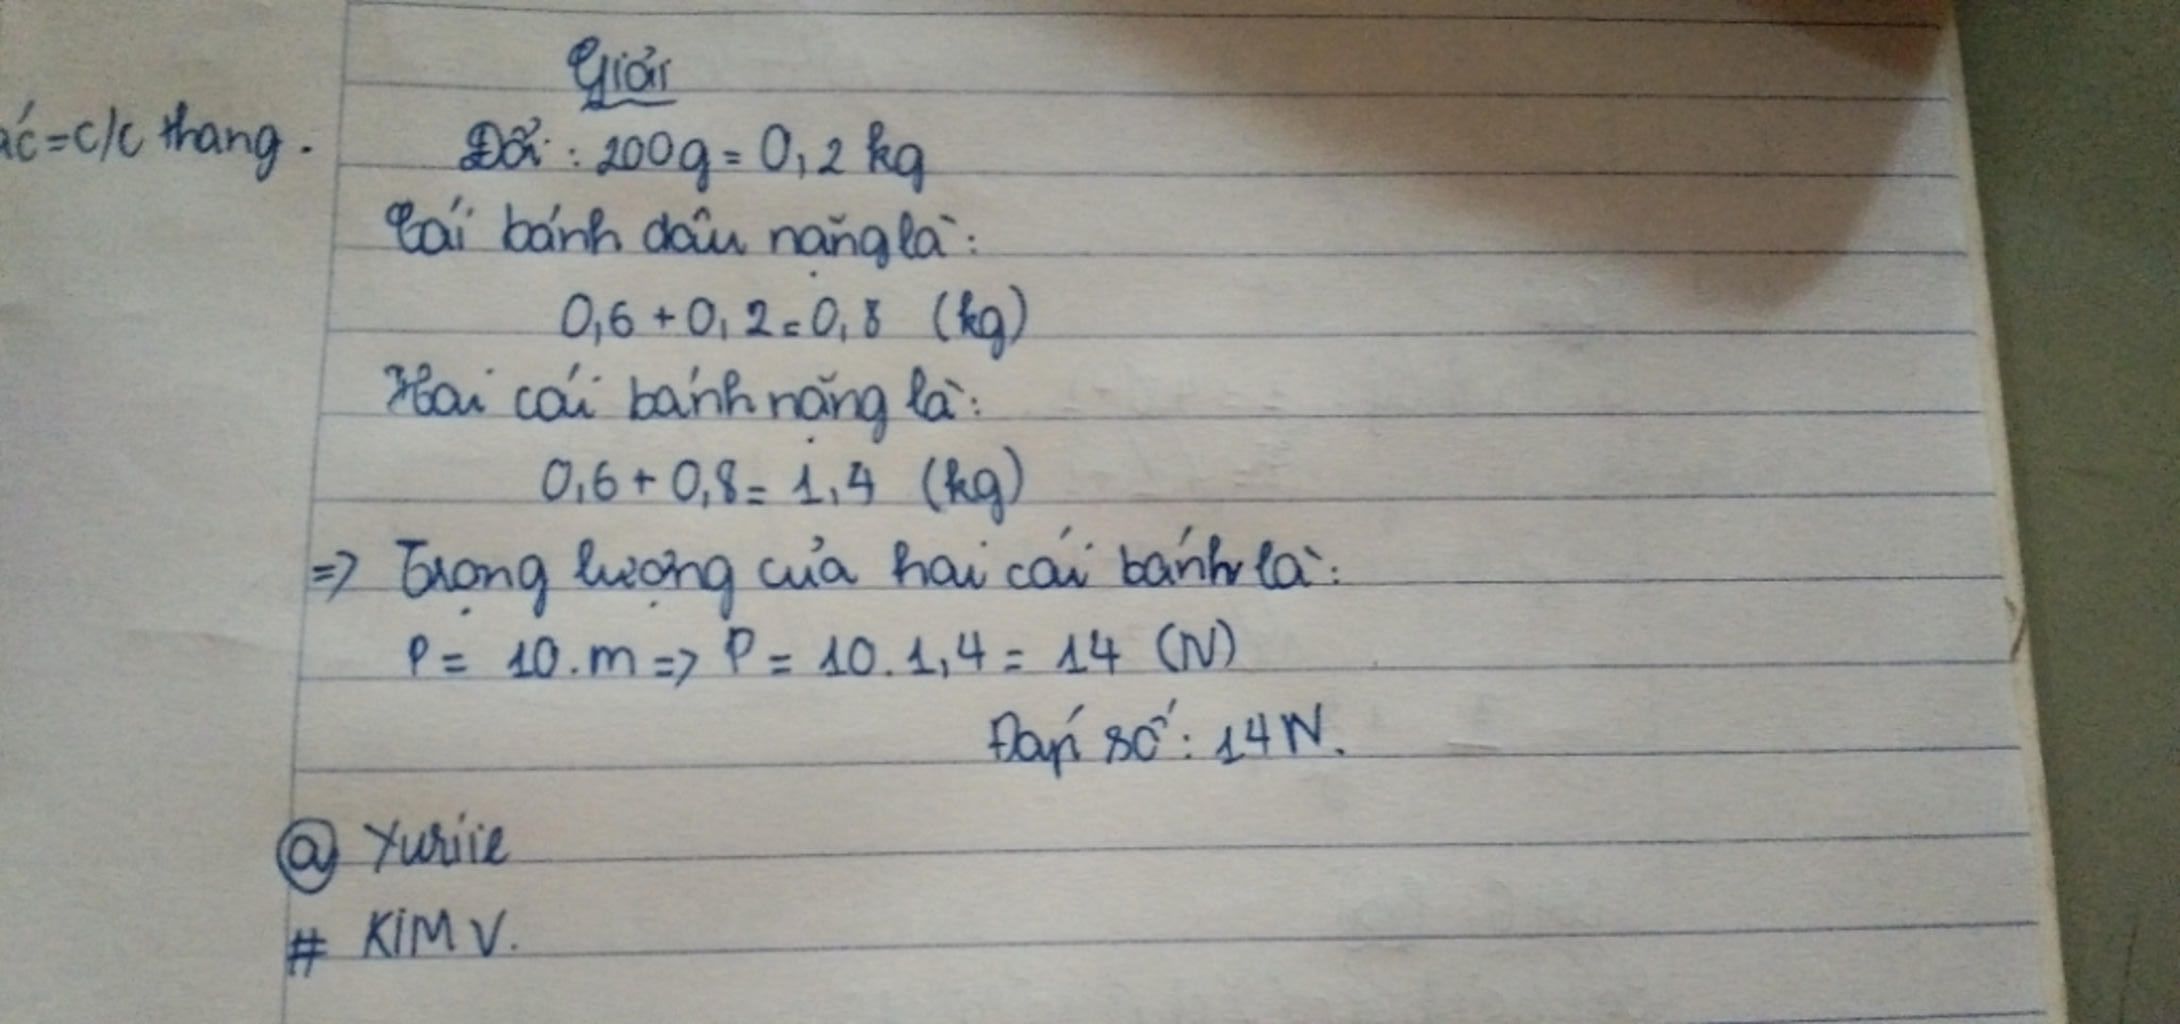 ác=c/c thang.
Giải
Đổi: 200g = 0,2 kg
Cái bánh dâu nặng là:
0,6 + 0,2 = 0,8 (kg)
Hai cái bánh nặng là:
0,6 + 0,8 = 1,4 (kg)
=> Trọng lượng của hai cái bánh là:
P = 10.m => P = 10.1,4 = 14 (N)
Đáp số: 14N.
@ Yuriie
# KIM V.